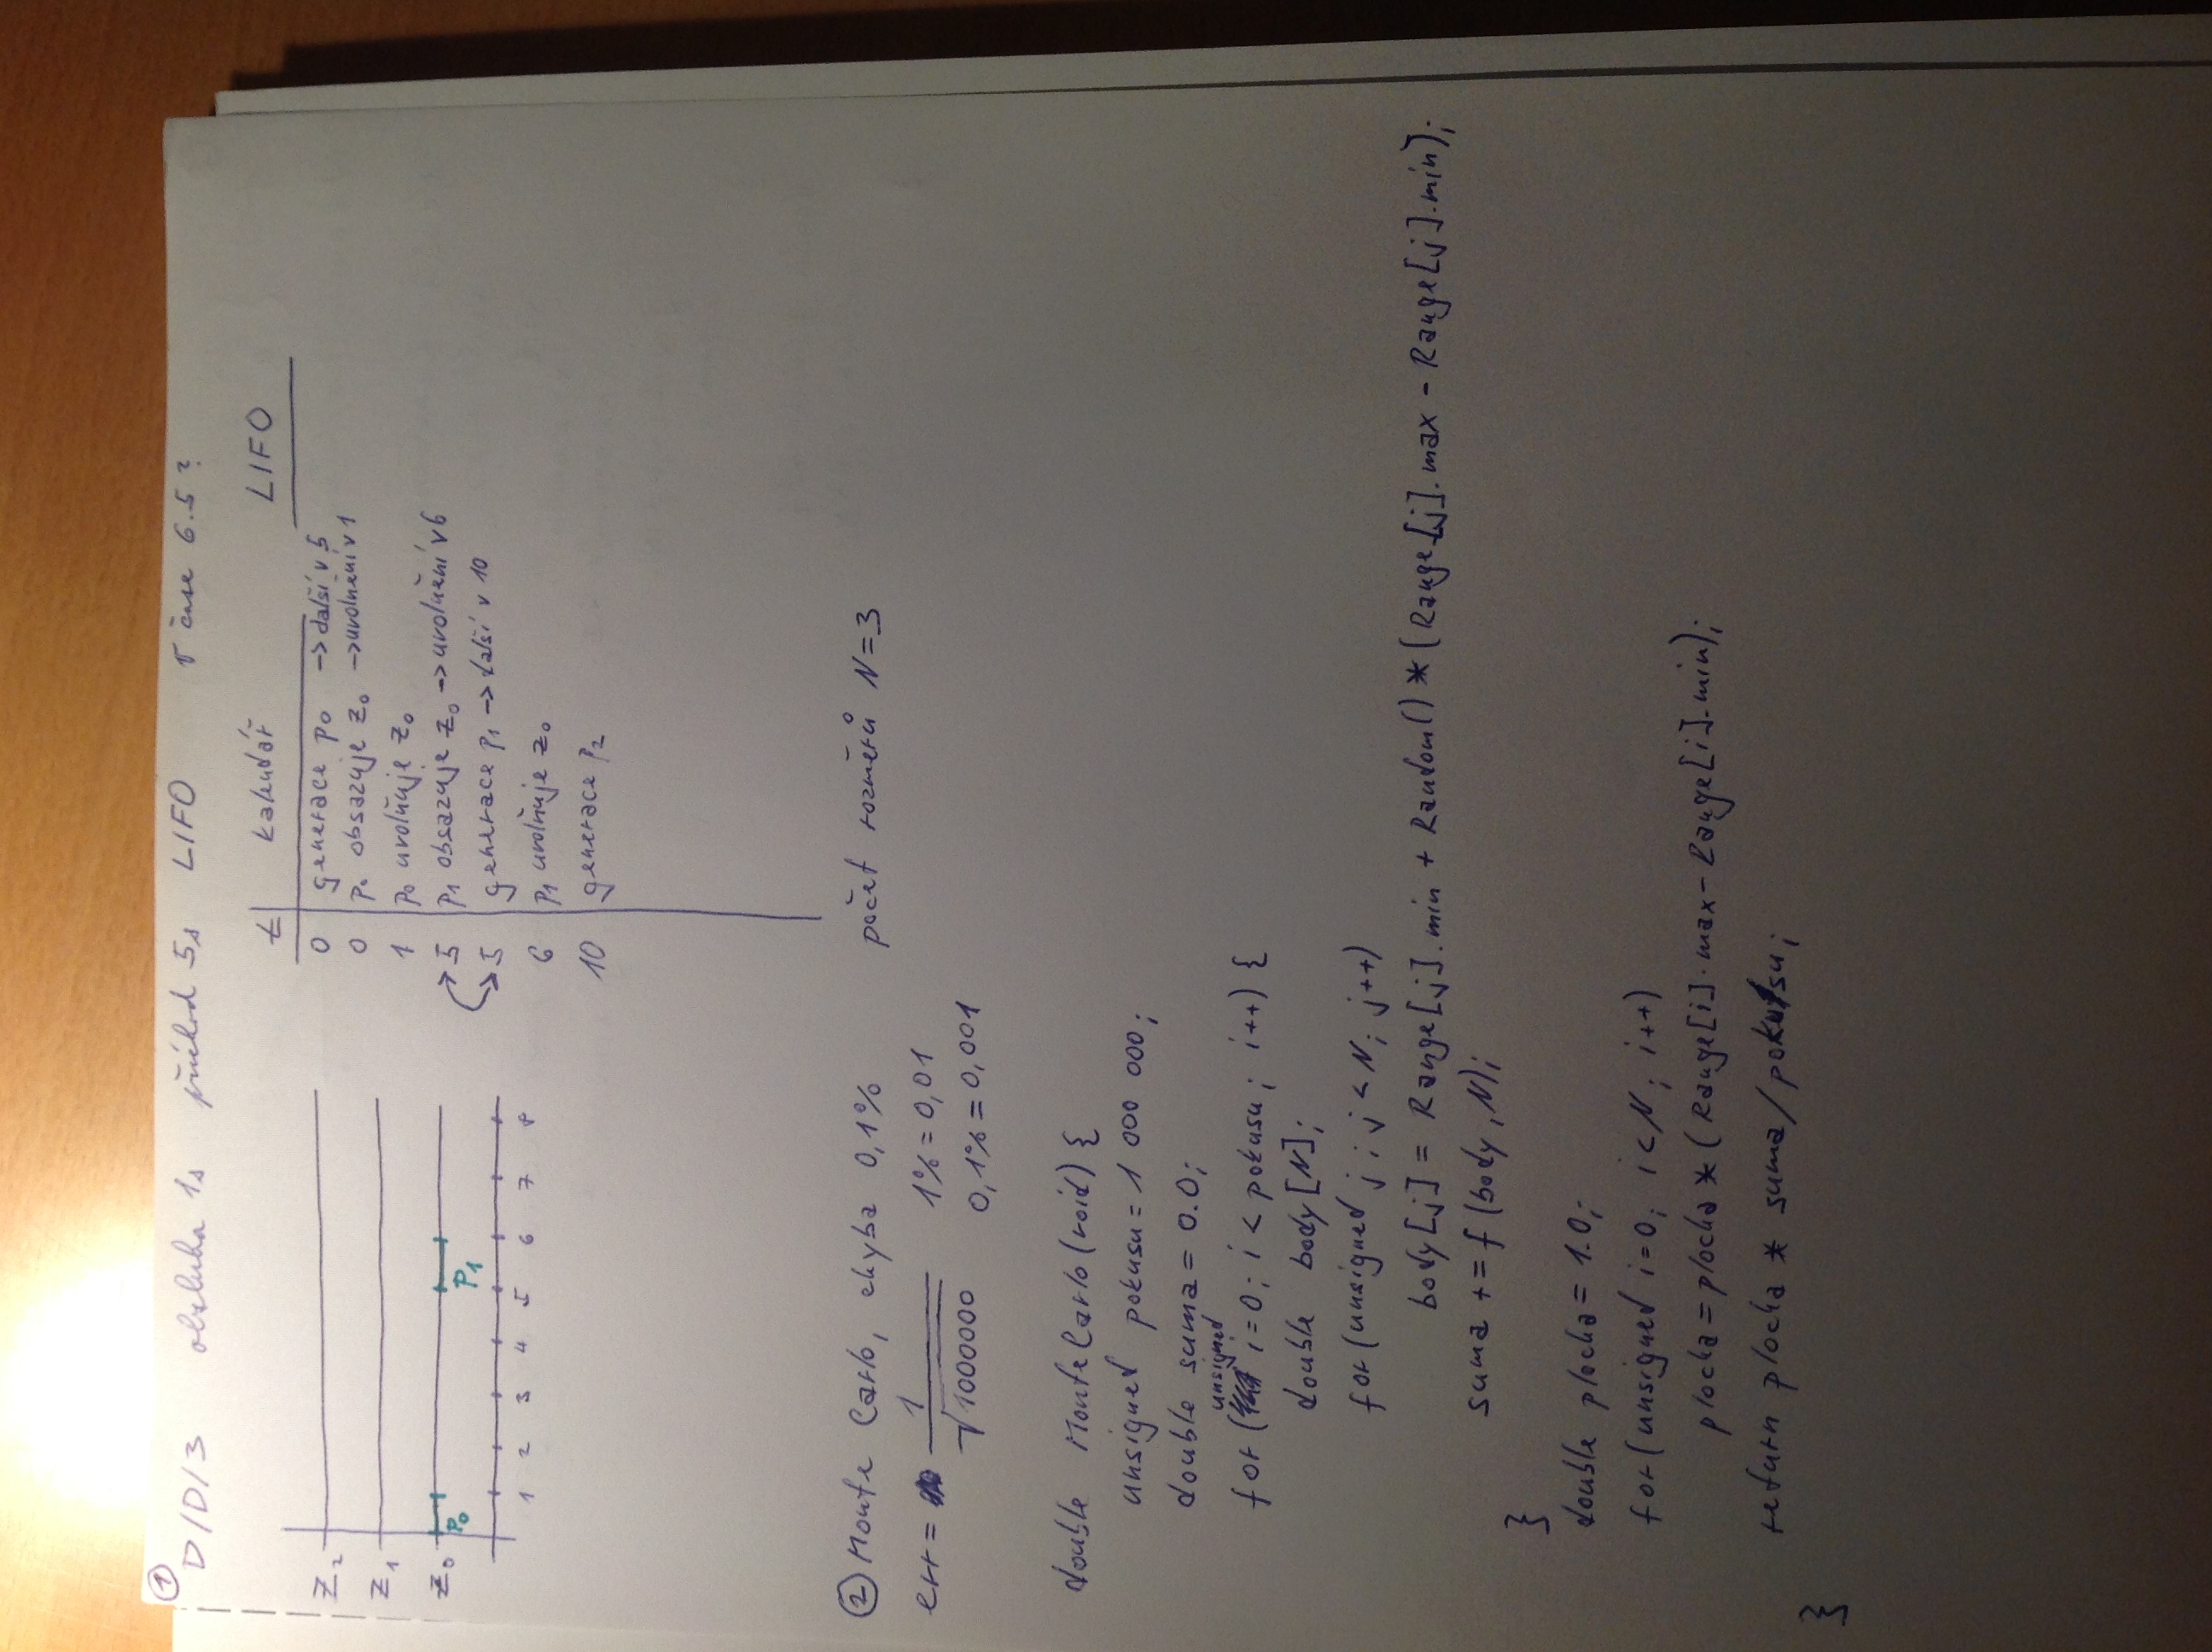 ①
D/D/3 obsluha 1s příchod 5s LIFO v čase 6.5?
t kalendář LIFO
0 generace p0 -> další v 5
0 p0 obsazuje z0 -> uvolnění v 1
1 p0 uvolňuje z0
5 p1 obsazuje z0 -> uvolnění v 6
5 generace p1 -> další v 10
6 p1 uvolňuje z0
10 generace p2
Z2
Z1
Z0
P0 P1
1 2 3 4 5 6 7 8
② Monte Carlo, chyba 0,1% počet rozměrů N=3
err = 1/√1000000 1% = 0,01
0,1% = 0,001
double MonteCarlo(void) {
unsigned pokusu = 1 000 000;
double suma = 0.0;
for (unsigned i=0; i < pokusu; i++) {
double body[N];
for (unsigned j; j < N; j++)
body[j] = Range[j].min + Random() * (Range[j].max - Range[j].min);
suma += f(body, N);
}
double plocha = 1.0;
for (unsigned i=0; i<N; i++)
plocha = plocha * (Range[i].max - Range[i].min);
return plocha * suma / pokusu;
}